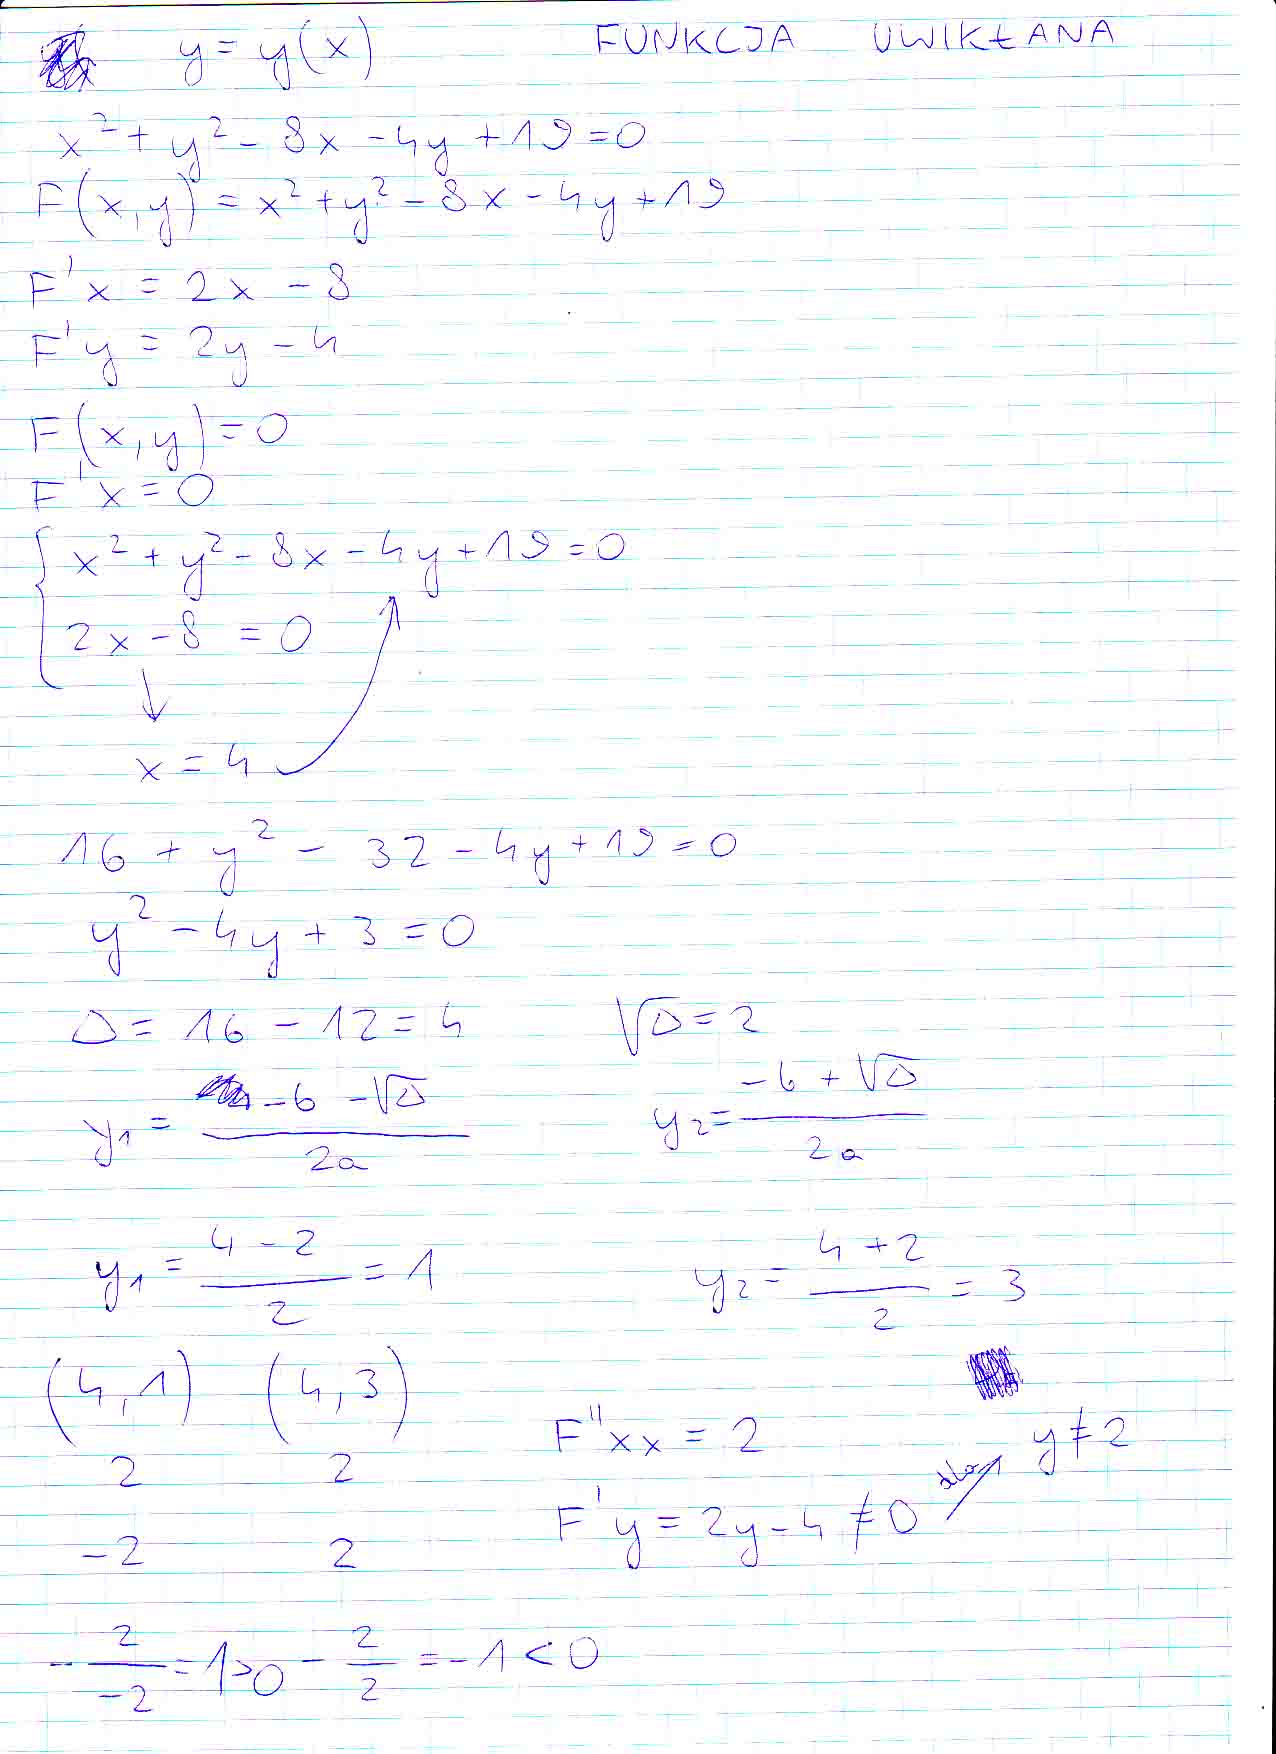 y = y(x) FUNKCJA UWIKŁANA
x² + y² - 8x - 4y + 19 = 0
F(x,y) = x² + y² - 8x - 4y + 19
F'x = 2x - 8
F'y = 2y - 4
F(x,y) = 0
F'x = 0
{ x² + y² - 8x - 4y + 19 = 0
2x - 8 = 0
↓
x = 4
16 + y² - 32 - 4y + 19 = 0
y² - 4y + 3 = 0
Δ = 16 - 12 = 4 √Δ = 2
y₁ = (-b - √Δ) / 2a y₂ = (-b + √Δ) / 2a
y₁ = (4 - 2) / 2 = 1 y₂ = (4 + 2) / 2 = 3
(4,1) (4,3)
F''xx = 2 y ≠ 2
2 2
F'y = 2y - 4 ≠ 0
-2 2
- 2 / -2 = 1 > 0 - 2 / 2 = -1 < 0